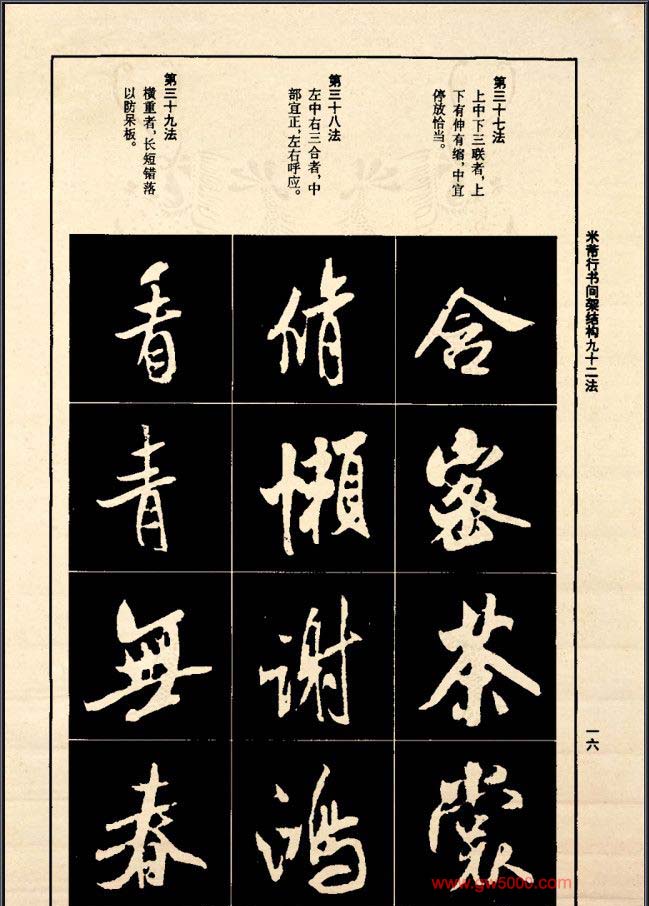 米芾行书间架结构九十二法
一六
第三十七法
上中下三联者，上
下有伸有缩，中宜
停放恰当。
含
密
茶
裳
第三十八法
左中右三合者，中
部宜正，左右呼应。
脩
懒
谢
鸿
第三十九法
横重者，长短错落
以防呆板。
看
青
無
春
www.gw5000.com